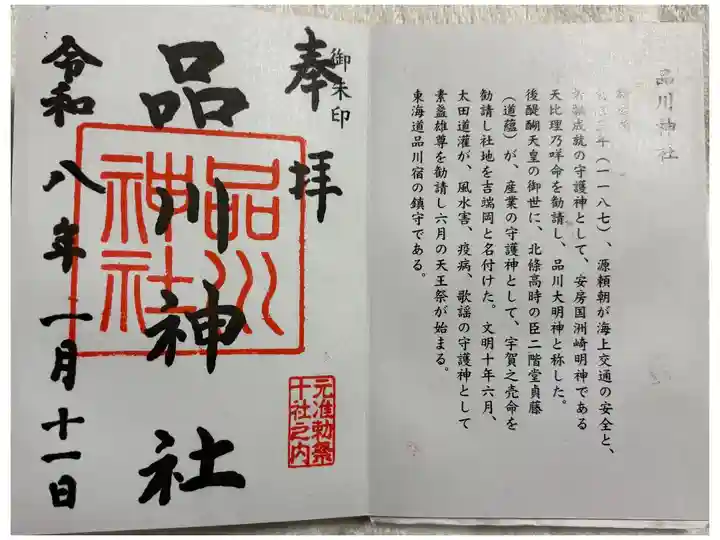 品川神社
文治三年（一一八七）、源頼朝が海上交通の安全と、
祈願成就の守護神として、安房国洲崎明神である
天比理乃咩命を勧請し、品川大明神と称した。
後醍醐天皇の御世に、北條高時の臣二階堂貞藤
（道蘊）が、産業の守護神として、宇賀之売命を
勧請し社地を吉端岡と名付けた。文明十年六月、
太田道灌が、風水害、疫病、歌謡の守護神として
素盞雄尊を勧請し六月の天王祭が始まる。
東海道品川宿の鎮守である。
御朱印
奉拝
品川神社
品川
神社
元准勅祭
十社之内
令和八年一月十一日